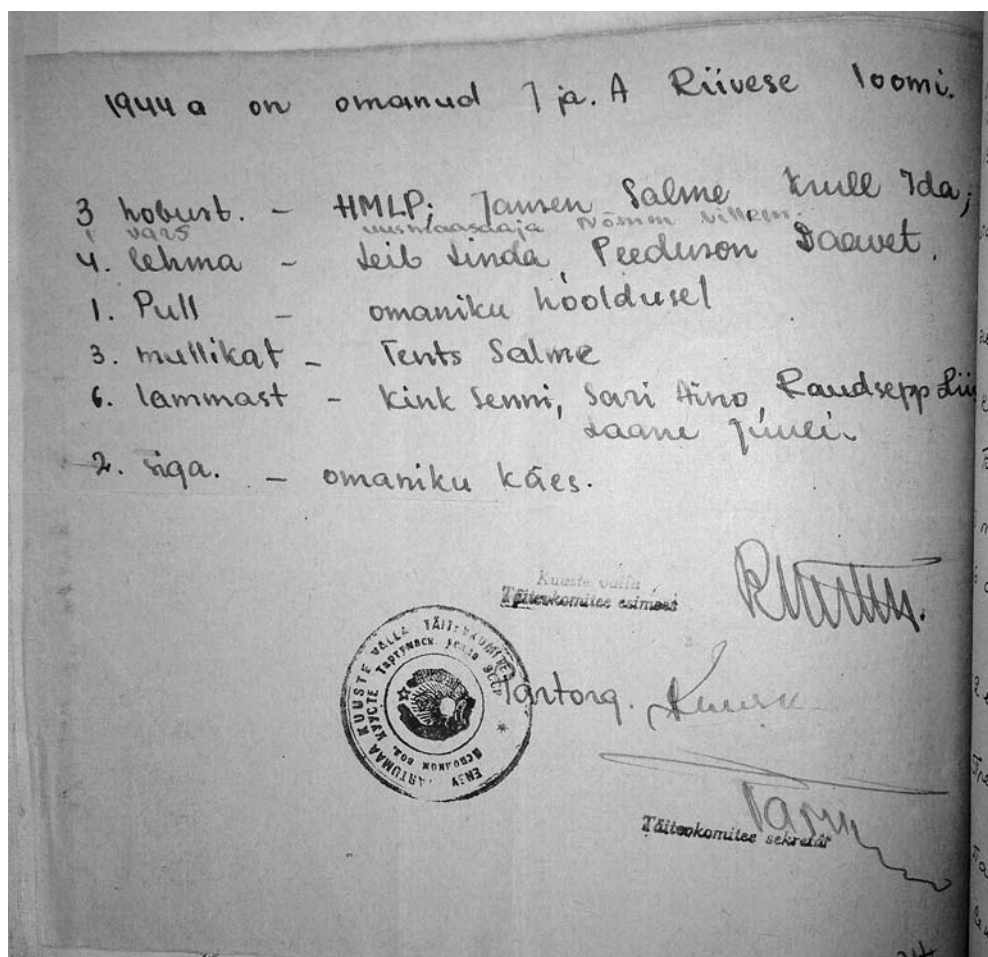 1944 a on omanud J ja. A Riivese loomi.
3 hobust. - HMLP; Jansen Salme Krull Ida;
1 vars uusmaasaaja Nõmm Villem.
4. lehma - Leib Linda, Peeduson Taavet.
1. Pull - omaniku hooldusel
3. mullikat - Tents Salme
6. lammast - Kink Senni, Sari Aino, Raudsepp Lii
Laane Juuli.
2. siga. - omaniku käes.
Kuuste valla
Täitevkomitee esimees
Partorg.
Täitevkomitee sekretär
ENSV TARTUMAA KUUSTE VALLA TÄITEVKOMITEE
ИСПОЛКОМ ВОЛ. КУУСТЕ ТАРТУМАСК. УЕЗДА ЭССР